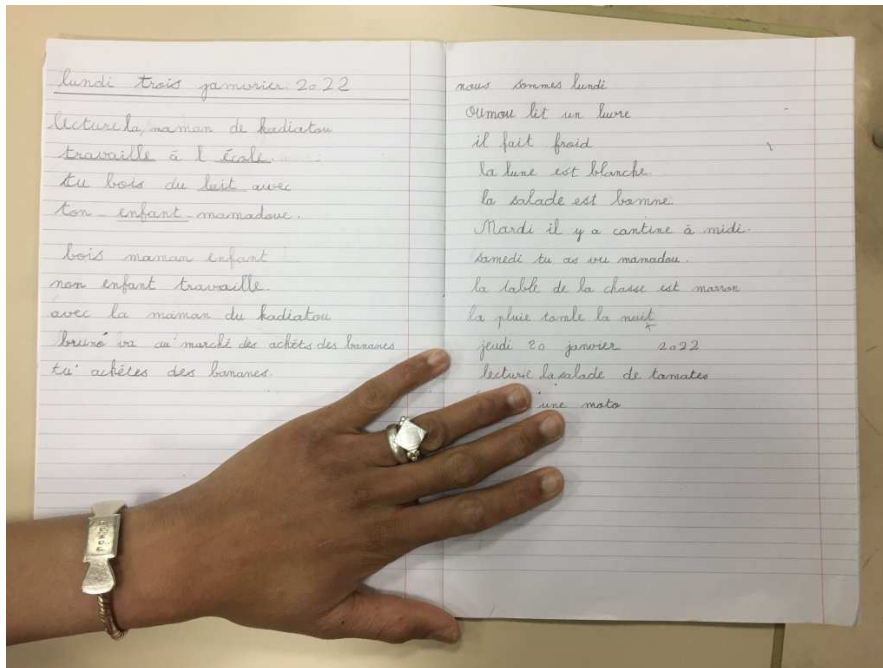 lundi trois janvrier 2022
lecture la maman de kadiatou
travaille à l école.
tu bois du lait avec
ton enfant mamadoue.
bois maman enfant
non enfant travaille.
avec la maman du kadiatou
bruno va au marché des achêts des bananes
tu achètes des bananes
nous sommes lundi
oumou lit un livre
il fait froid
la lune est blanche.
la salade est bonne
Mardi il y a cantine à midi.
samedi tu as vu mamadou.
la table de la chasse est marron
la pluie tomle la nuit
jeudi 20 janvier 2022
lecture la salade de tamates
une moto